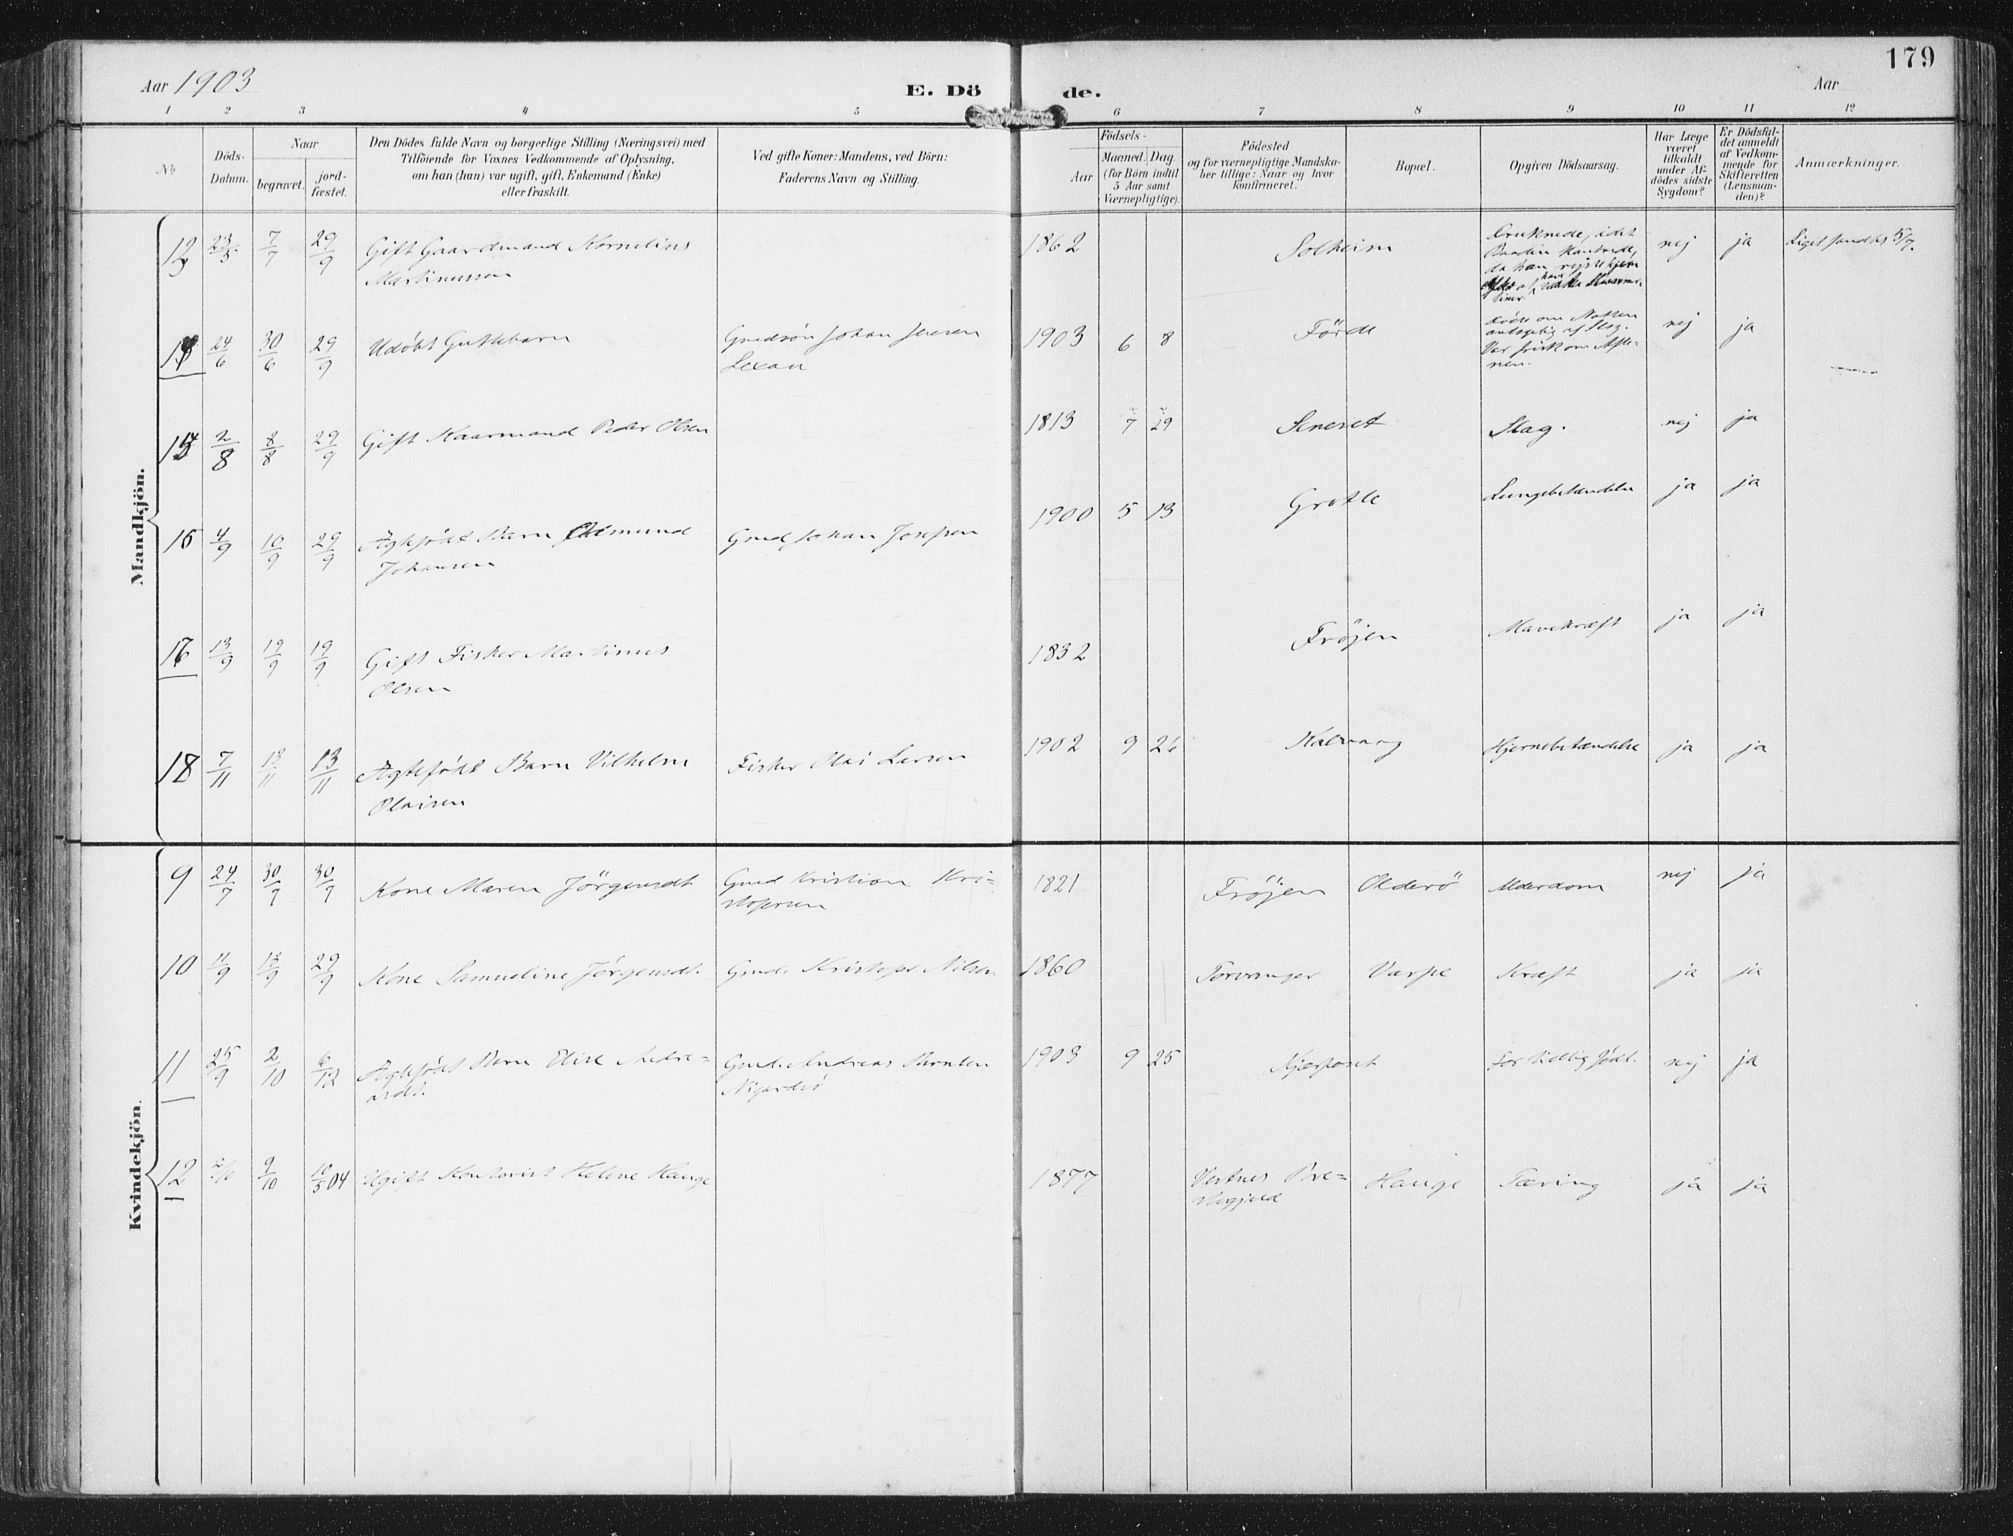 179
Aar 1903
E. Dö
de.
Aar
1 2 3 4 5 6 7 8 9 10 11 12
No
Döds-
Datum.
Naar
begravet.
jord-
fæstet.
Den Dödes fulde Navn og borgerlige Stilling (Næringsvei) med
Tilföiende for Voxnes Vedkommende af Oplysning,
om han (hun) var ugift, gift, Enkemand (Enke)
eller fraskilt.
Ved gifte Koner: Mandens, ved Börn:
Faderens Navn og Stilling.
Aar
Födsels-
Maaned. Dag.
(for Börn indtil
5 Aar samt
Værnepligtige).
Födested
og for værnepligtige Mandska-
ber tillige: Naar og hvor
konfirmeret.
Bopæl.
Opgiven Dödsaarsag.
Har Læge
været
tilkaldt
under Af-
dödes sidste
Sygdom?
Er Dödsfal-
det anmeldt
af Vedkom-
mende for
Skifteretten
(Lensman-
den)?
Anmærkninger.
Mandkjön.
23/5 7/7 29/9 Gift Gaardmand Kornelius 1862 Solheim nej ja Liget fandtes 5/7.
Martinussen
24/6 30/6 29/9 Udöbt Guttebarn Johan Jensen 1903 6 8 Förde nej ja
2/8 8/8 29/9 Gift Kaarmand Peder Olsen 1813 7 29 Seneset Slag. nej ja
16 4/9 10/9 29/9 Ægtefödt Barn Johan Josefsen 1900 5 13 Grotle Lungebetændelse ja ja
Johansen
13/9 19/9 19/9 Gift Fisker Martinus 1832 Fröjen Mavekræft ja ja
Olsen
18 7/11 13/11 13/11 Ægtefödt Barn Vilhelm Fisker Olai Larsen 1902 9 26 Kalvaag Hjernebetændelse ja ja
Olaisen
Kvindekjön.
9 24/7 30/7 30/7 Kone Maren Jörgensdt Gmd Kristian Kri=
stofersen 1821 Fröjen Olderö Alderdom nej ja
10 11/9 18/9 29/9 Kone Samueline Jörgensdt. Gmd. Kristofer Nilsen 1860 Torvanger Varpe Kræft ja ja
11 25/9 2/10 6/12 Ægtefödt Barn Elise Andre= Gmd. Andreas 1903 9 25 For tidlig födt. nej ja
asdt.
12 9/10 10/5 04 Ugift Kontorist Helene Hauge 1877 Vestnes Pre= Hauge Tæring ja ja
stegjeld